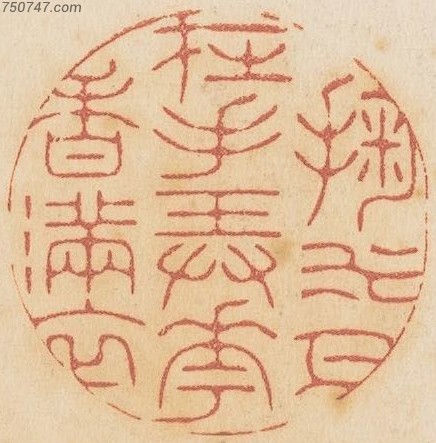 750747.com
掬水月
在手弄花
香滿衣